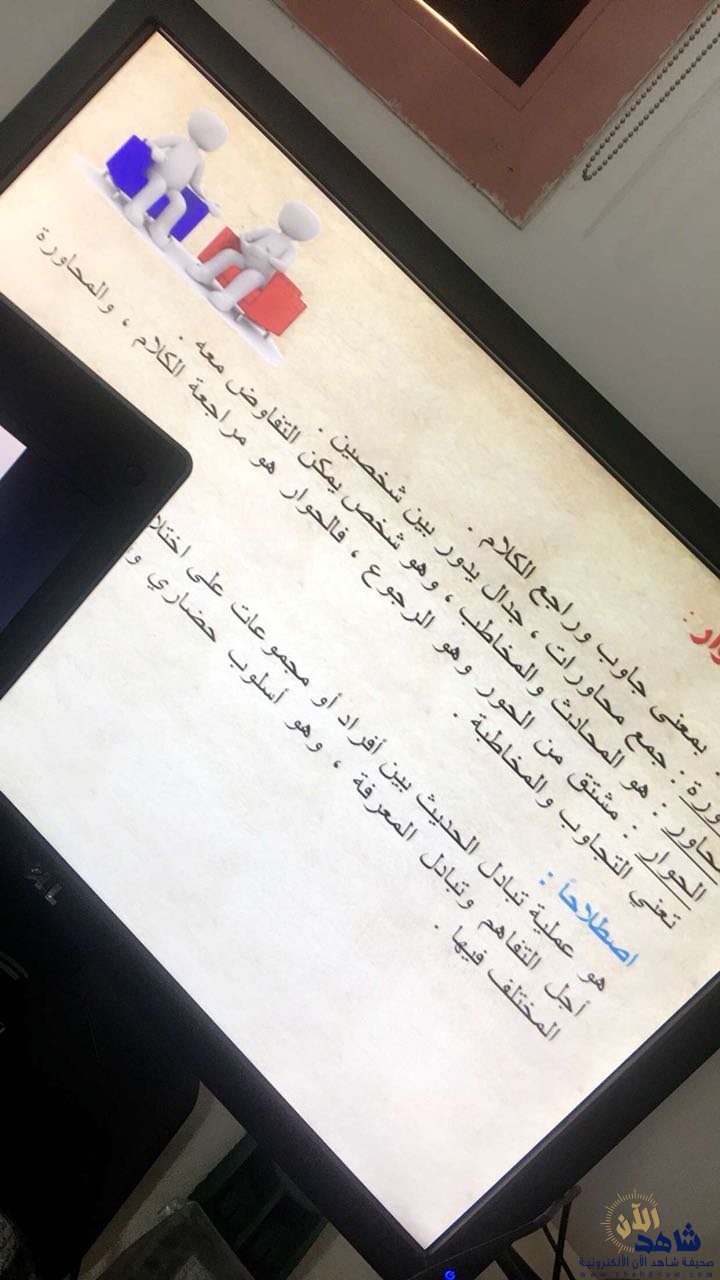 : بمعنى جاوب وراجع الكلام .
: جمع محاورات ، جدال يدور بين شخصين .
: هو المحادث والمخاطب ، وهو شخص يمكن التفاوض معه .
الحوار : مشتق من الحور وهو الرجوع ، فالحوار هو مراجعة الكلام ، والمحاورة
تعني التجاوب والمخاطبة .
اصطلاحاً :
هو عملية تبادل الحديث بين أفراد أو مجموعات على
أجل التفاهم وتبادل المعرفة ، وهو أسلوب حضاري
المختلف فيها .
شاهد الآن
صحيفة شاهد الآن الالكترونية
www.shahdnow.com